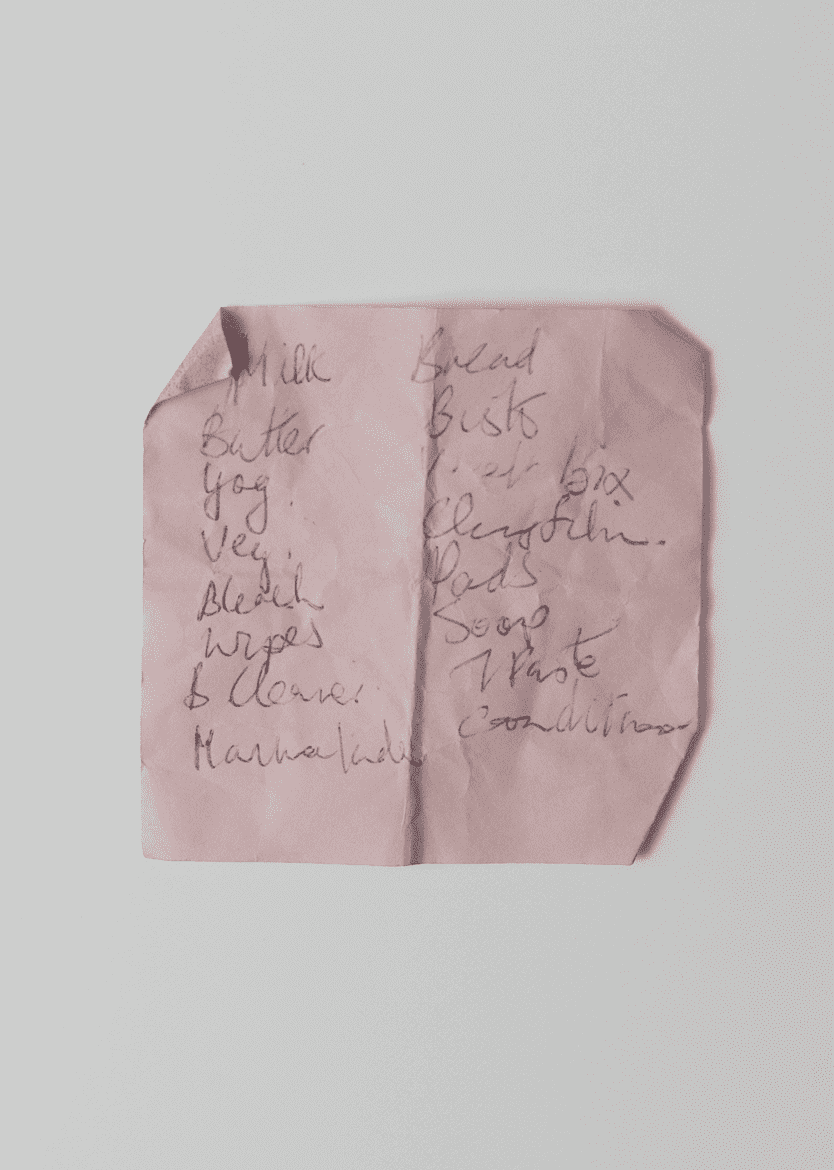 Milk
Butter
Yog.
Veg.
Bleach
Wipes
B Cleaner
Marmalade
Bread
Bisto
bix
Clingfilm.
Pads
Soap
T Paste
Conditioner